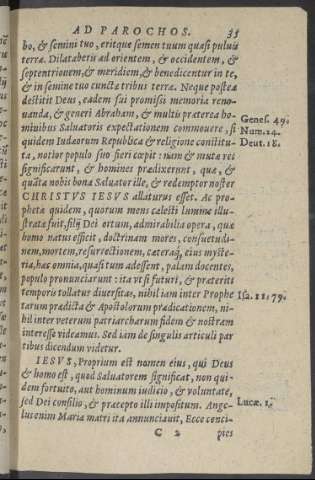 AD PAROCHOS. 35
bo, & semini tuo, eritque semen tuum quasi puluis
terræ. Dilataberis ad orientem, & occidentem, &
septentrionem, & meridiem, & benedicentur in te,
& in semine tuo cunctæ tribus terræ. Neque posteà
destitit Deus, eadem sui promissi memoria reno-
uanda, & generi Abraham, & multis præterea ho-
minibus Saluatoris expectationem commouere, si
quidem Iudæorum Republica & religione constitu-
ta, notior populo suo fieri cœpit: nam & mutæ res
significarunt, & homines prædixerunt, quæ, &
quãta nobis bona Saluator ille, & redemptor noster
CHRISTVS IESVS allaturus esset. Ac pro-
phetæ quidem, quorum mens cælesti lumine illu-
strata fuit, filij Dei ortum, admirabilia opera, quæ
homo natus effecit, doctrinam mores, consuetudi-
nem, mortem, resurrectionem, cæteraq́, eius myste-
ria, hæc omnia, quasi tum adessent, palam docentes,
populo pronunciarunt: ita vt si futuri, & præteriti
temporis tollatur diuersitas, nihil iam inter Prophe
tarum prædicta & Apostolorum prædicationem, ni-
hil inter veterum patriarcharum fidem & nostram
interesse videamus. Sed iam de singulis articuli par
tibus dicendum videtur.
IESVS, Proprium est nomen eius, qui Deus
& homo est, quod Saluatorem significat, non qui-
dem fortuito, aut hominum iudicio, & voluntate,
sed Dei consilio, & præcepto illi impositum. Ange-
lus enim Mariæ matri ita annunciauit, Ecce conci-
C 2 pies
Genes. 49.
Num. 24.
Deut. 18.
Isa. 11: 79.
Lucæ. 1.